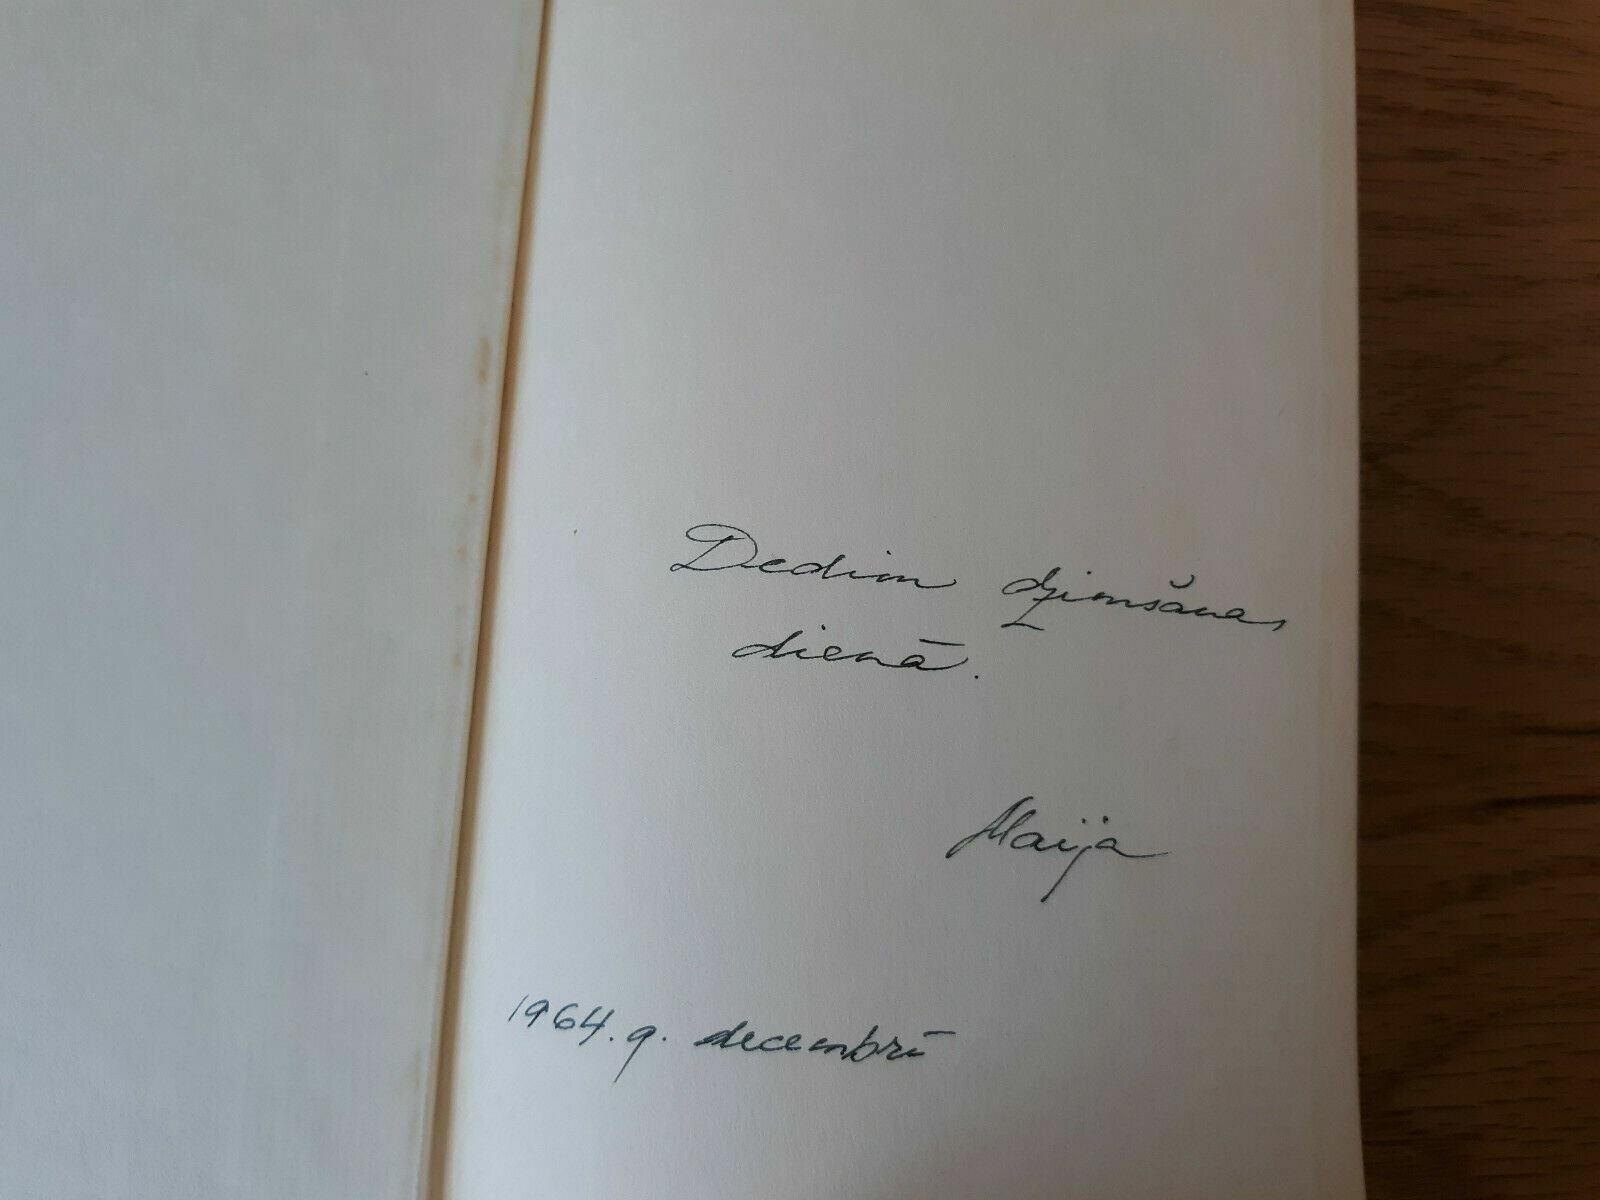 Dedim dzimšanas
dienā.
Maija
1964. g. decembrī